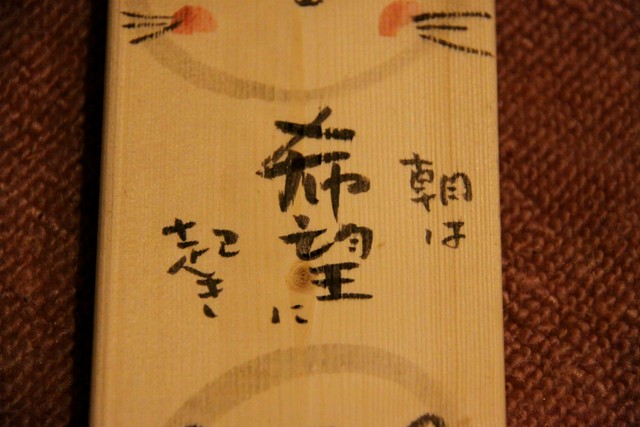 朝は
希望に
起き